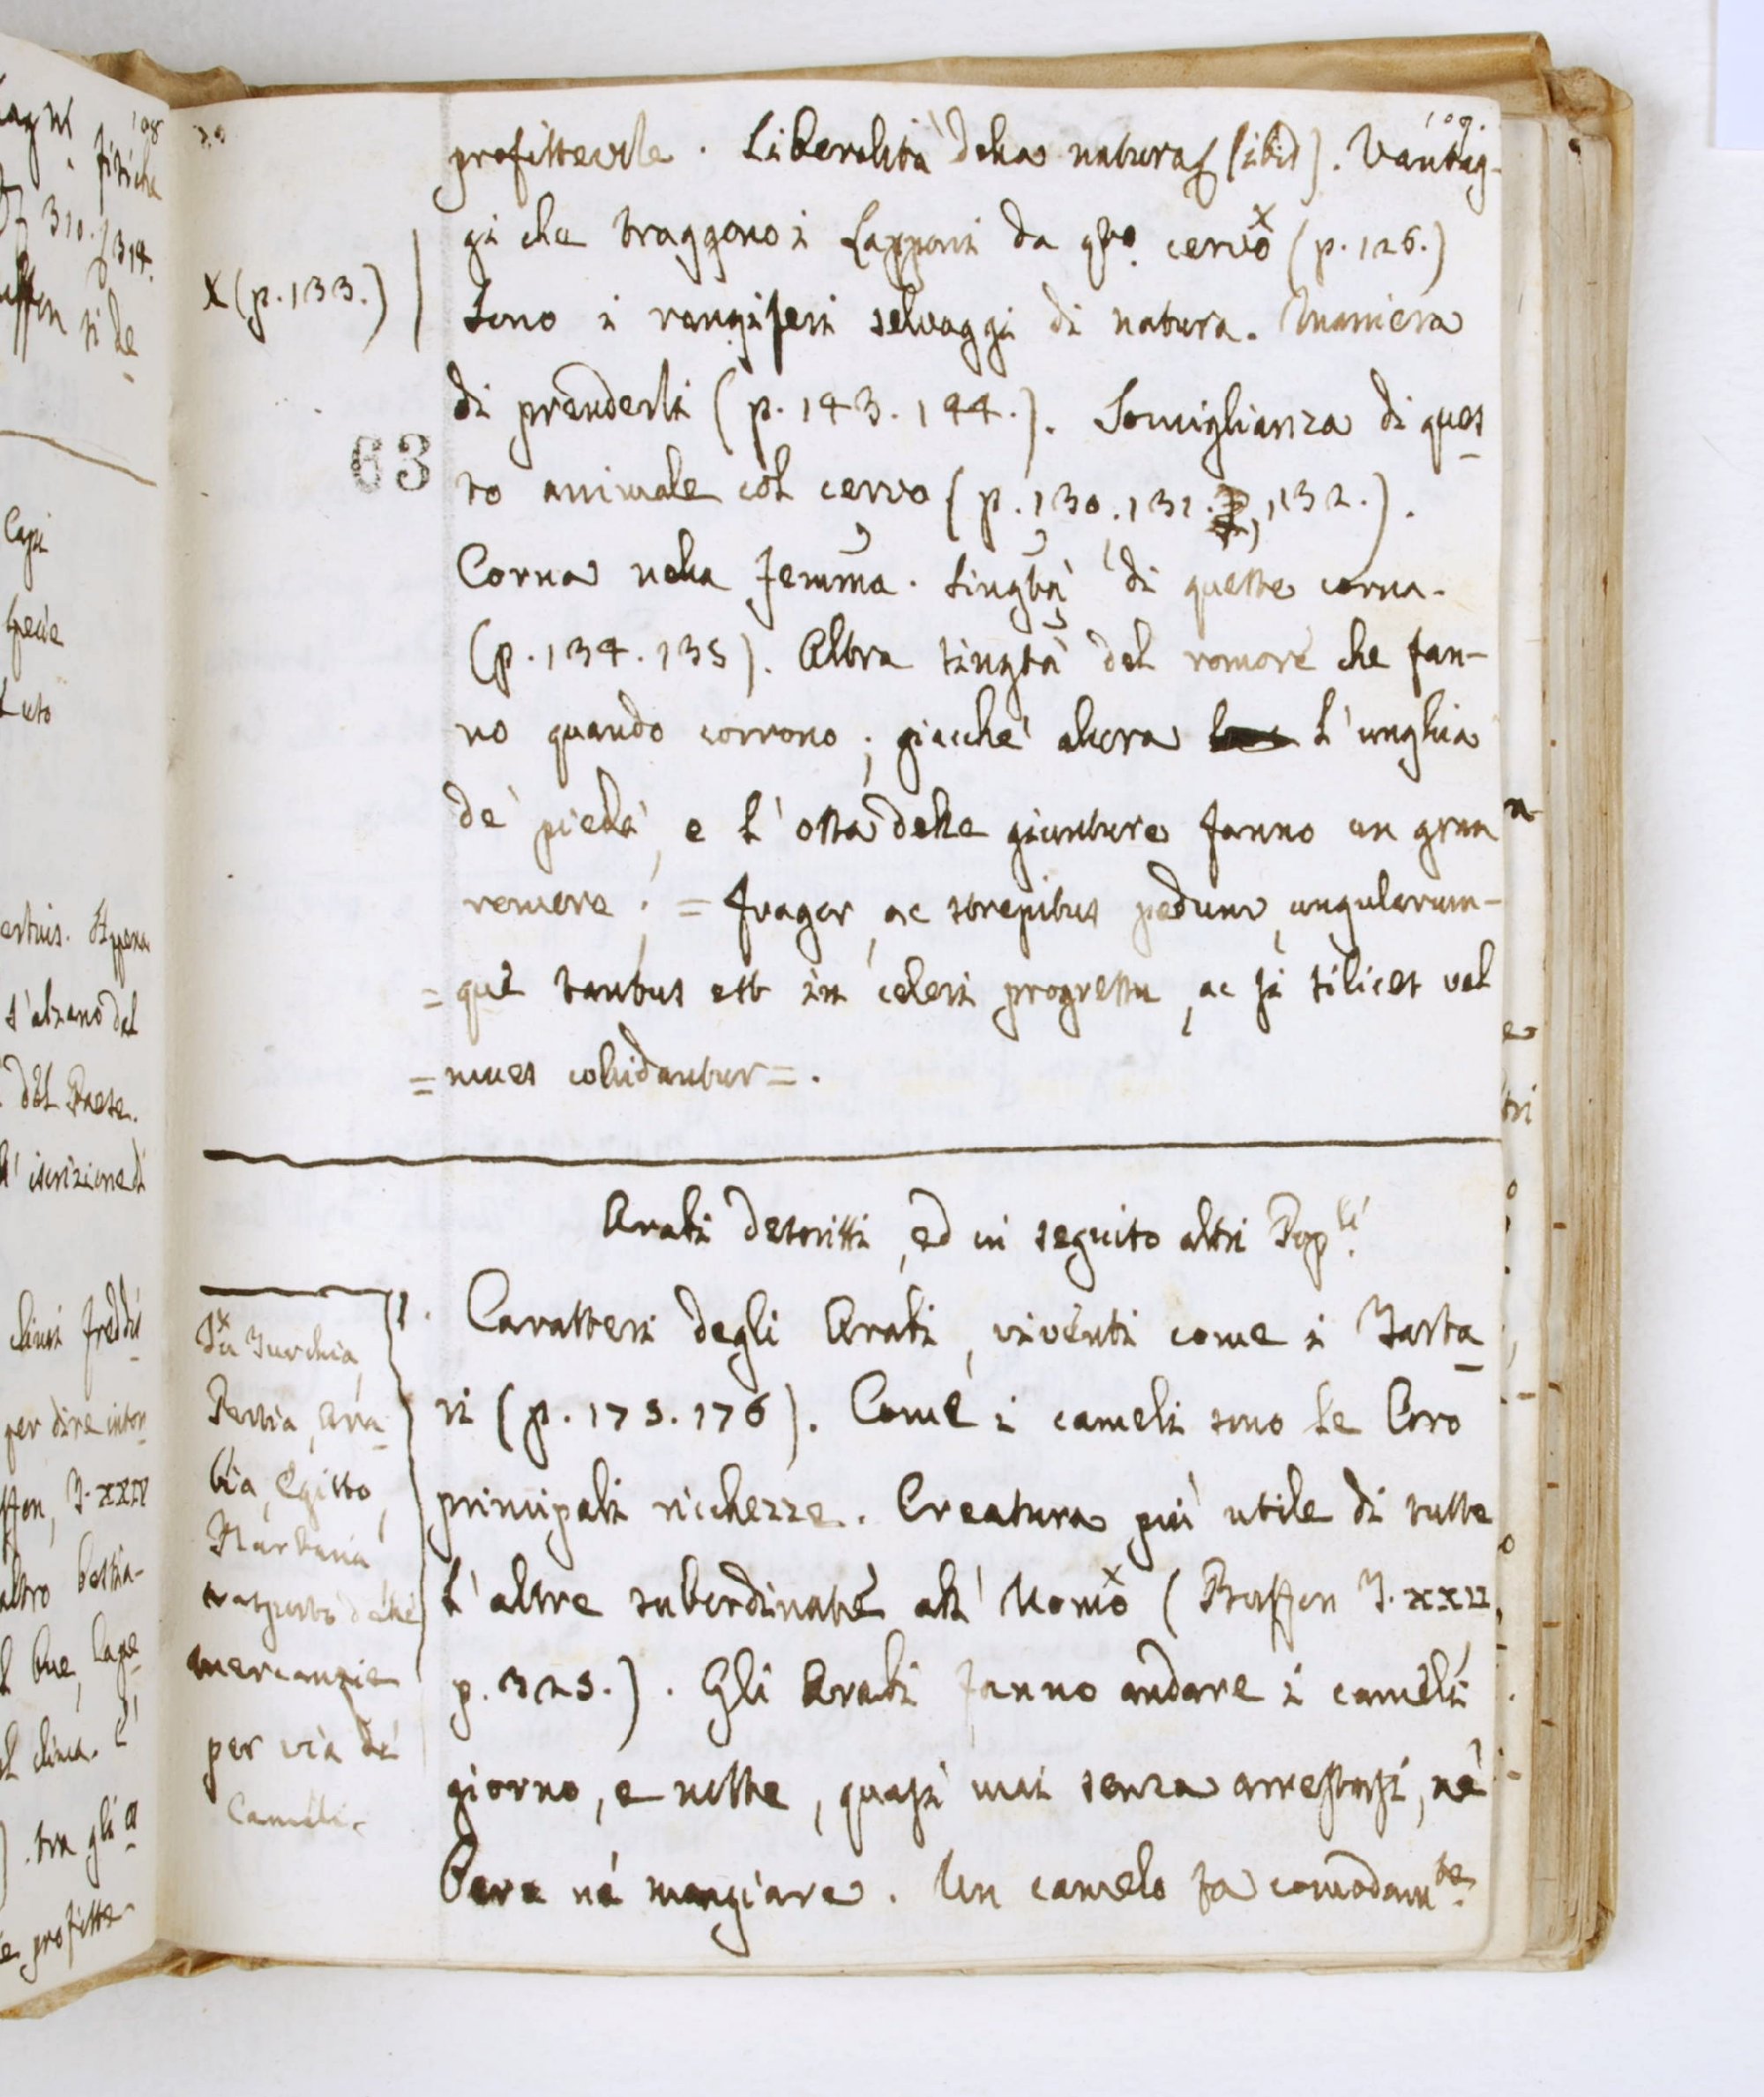 109.
profittevole. Liberalità della natura (ibid). Vantag-
gi che traggono i Lapponi da qto. cervo x (p. 126.)
x (p. 133.)
Sono i rangiferi selvaggi di natura. Maniera
di prenderli (p. 143. 144.). Somiglianza di ques
to animale col cervo (p. 130. 131. 132.).
63
Corna nella femma. Singtà di queste corna.
(p. 134. 135). Altra singtà del romore che fan-
no quando corrono; giacchè allora l'unghia
de' piedi, e l'ossa delle giunture fanno un gran
romore: = fragor, ac strepitus pedum, ungularum-
= que tantus est in celeri progressu, ac si silices vel
= nuces collidantur =.
Arabi descritti, ed in seguito altri Popli.
1. Caratteri degli Arabi, viventi come i Tarta
ri (p. 175. 176). Come i cameli sono le loro
principali ricchezze. Creatura più utile di tutte
l'altre subordinate all'Uomo x (Buffon T. XXII,
p. 325.). Gli Arabi fanno andare i cameli
giorno, e notte, quasi mai senza arrestarsi, né
bere né mangiare. Un camelo fa comodamte.
x In Turchia,
Persia, Ara
bia, Egitto,
Barbaria
trasporto delle
mercanzie
per via de'
Cameli.